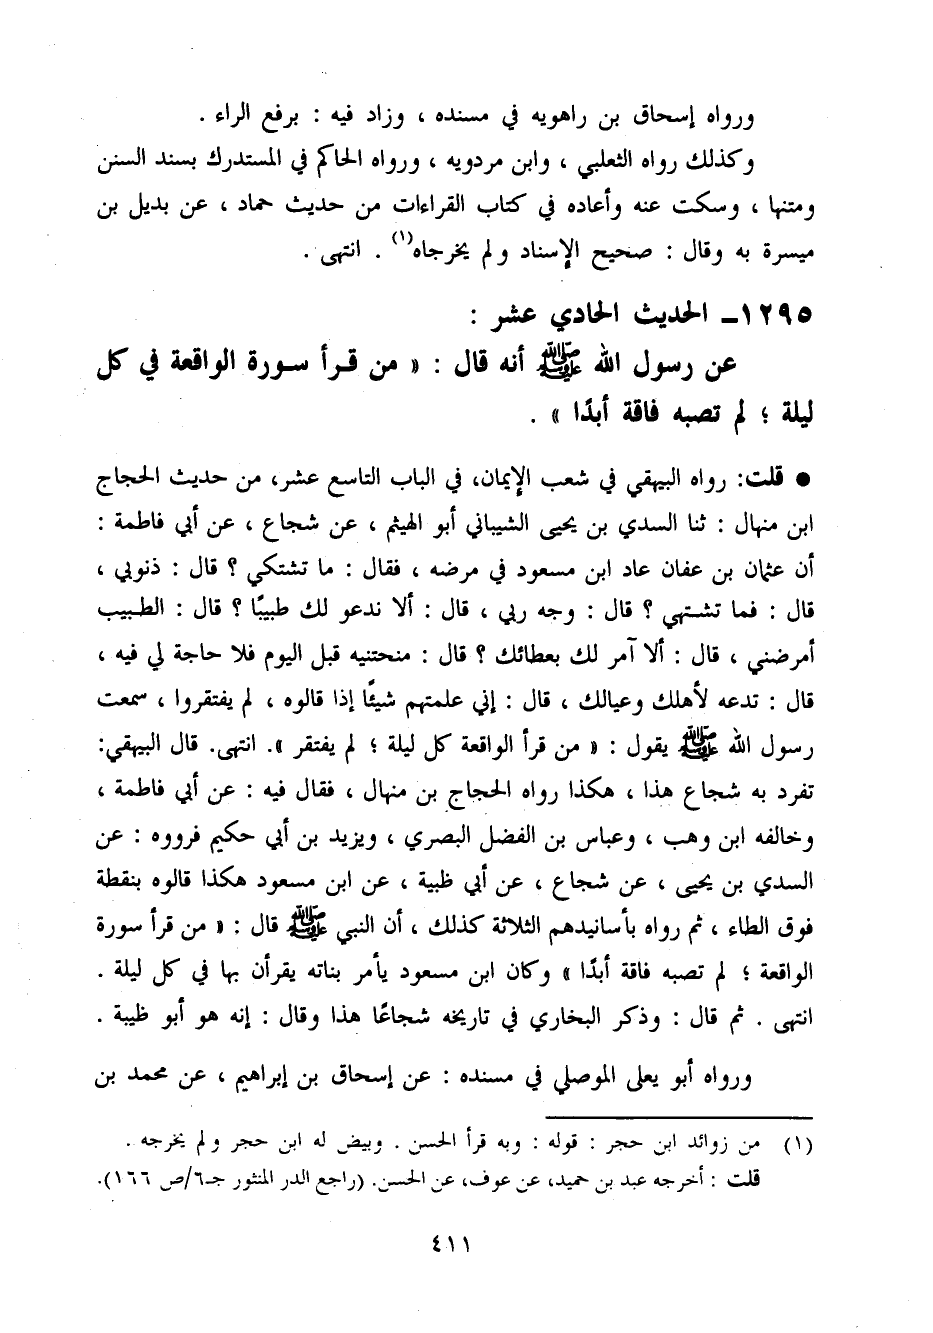 ورواه إسحاق بن راهويه في مسنده ، وزاد فيه : برفع الراء .
وكذلك رواه الثعلبي ، وابن مردويه ، ورواه الحاكم في المستدرك بسند السنن
ومتنها ، وسكت عنه وأعاده في كتاب القراءات من حديث حماد ، عن بديل بن
ميسرة به وقال : صحيح الإسناد ولم يخرجاه(١) . انتهى .
١٢٩٥ـ الحديث الحادي عشر :
عن رسول الله ﷺ أنه قال : « من قرأ سورة الواقعة في كل
ليلة ؛ لم تصبه فاقة أبدًا » .
● قلت: رواه البيهقي في شعب الإيمان، في الباب التاسع عشر، من حديث الحجاج
ابن منهال : ثنا السدي بن يحيى الشيباني أبو الهيثم ، عن شجاع ، عن أبي فاطمة :
أن عثمان بن عفان عاد ابن مسعود في مرضه ، فقال : ما تشتكي ؟ قال : ذنوبي ،
قال : فما تشتهي ؟ قال : وجه ربي ، قال : ألا ندعو لك طبيبًا ؟ قال : الطبيب
أمرضني ، قال : ألا آمر لك بعطائك ؟ قال : منحتنيه قبل اليوم فلا حاجة لي فيه ،
قال : تدعه لأهلك وعيالك ، قال : إني علمتهم شيئًا إذا قالوه ، لم يفتقروا ، سمعت
رسول الله ﷺ يقول : « من قرأ الواقعة كل ليلة ؛ لم يفتقر ». انتهى. قال البيهقي:
تفرد به شجاع هذا ، هكذا رواه الحجاج بن منهال ، فقال فيه : عن أبي فاطمة ،
وخالفه ابن وهب ، وعباس بن الفضل البصري ، ويزيد بن أبي حكيم فرووه : عن
السدي بن يحيى ، عن شجاع ، عن أبي ظبية ، عن ابن مسعود هكذا قالوه بنقطة
فوق الطاء ، ثم رواه بأسانيدهم الثلاثة كذلك ، أن النبي ﷺ قال : « من قرأ سورة
الواقعة ؛ لم تصبه فاقة أبدًا » وكان ابن مسعود يأمر بناته يقرأن بها في كل ليلة .
انتهى . ثم قال : وذكر البخاري في تاريخه شجاعًا هذا وقال : إنه هو أبو طيبة .
ورواه أبو يعلى الموصلي في مسنده : عن إسحاق بن إبراهيم ، عن محمد بن
(١) من زوائد ابن حجر : قوله : وبه قرأ الحسن . وبيض له ابن حجر ولم يخرجه .
قلت : أخرجه عبد بن حميد، عن عوف، عن الحسن. (راجع الدر المنثور جـ٦/ص ١٦٦).
٤١١